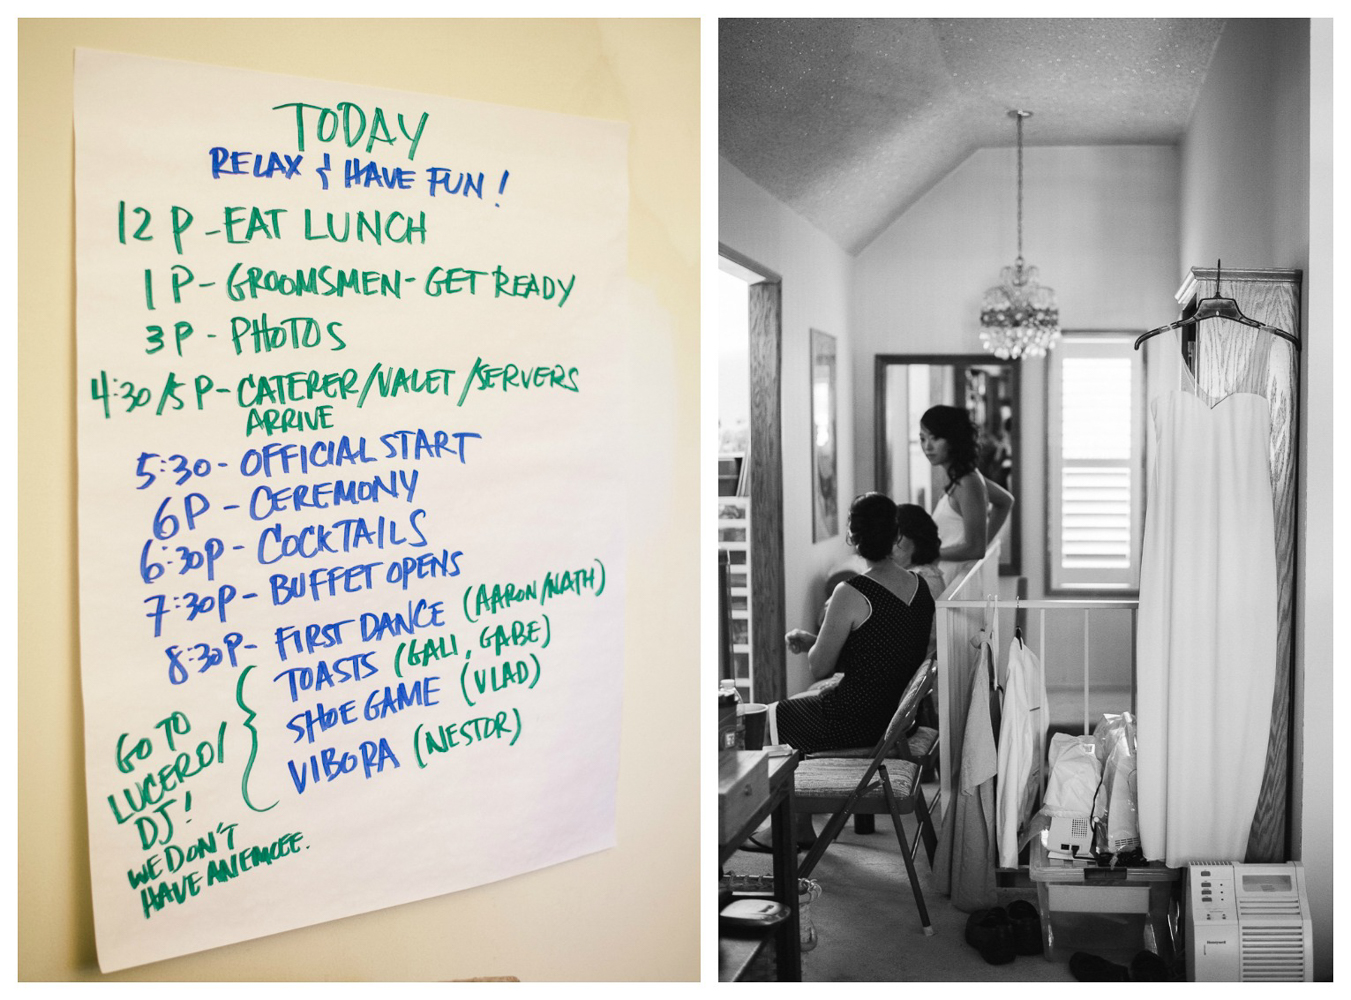 TODAY
RELAX & HAVE FUN!
12 P - EAT LUNCH
1 P - GROOMSMEN - GET READY
3 P - PHOTOS
4:30/5 P - CATERER/VALET/SERVERS
ARRIVE
5:30 - OFFICIAL START
6P - CEREMONY
6:30P - COCKTAILS
7:30P - BUFFET OPENS
8:30P - FIRST DANCE (AARON/NATH)
TOASTS (GALI, GABE)
SHOE GAME (VLAD)
VIBORA (NESTOR)
GO TO
LUCERO/
DJ!
WE DON'T
HAVE AN EMCEE.
Honeywell